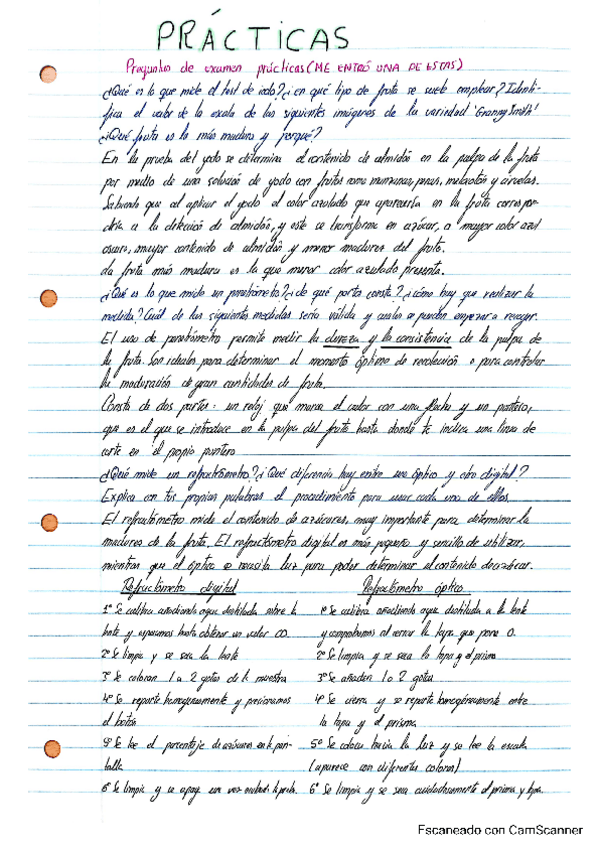 PRÁCTICAS
Preguntas de examen prácticas (ME ENTRÓ UNA DE ESTAS)
¿Qué es lo que mide el test de iodo? ¿en qué tipo de fruta se suele emplear? Identi-
fica el valor de la escala de las siguientes imágenes de la variedad 'Granny Smith'
¿Qué fruta es la más madura y porqué?
En la prueba del yodo se determina el contenido de almidón en la pulpa de la fruta
por medio de una solución de yodo con frutos como manzanas, peras, melocotón y ciruelas.
Sabiendo que al aplicar el yodo el color azulado que aparecería en la fruta correspon-
dría a la detección de almidón, y este se transforma en azúcar, a mayor color azul
oscuro, mayor contenido de almidón y menor madurez del fruto.
La fruta más madura es la que menor color azulado presenta.
¿Qué es lo que mide un penetrómetro? ¿de qué partes consta? ¿cómo hay que realizar la
medida? Cuál de las siguientes medidas sería válida y cuales se pueden empezar a recoger.
El uso de penetrómetro permite medir la dureza y la consistencia de la pulpa de
la fruta. Son ideales para determinar el momento óptimo de recolección o para controlar
la maduración de gran cantidades de fruta.
Consta de dos partes: un reloj que marca el valor con una flecha y un puntero,
que es el que se introduce en la pulpa del fruto hasta donde te indica una línea de
corte en el propio puntero
¿Qué mide un refractómetro? ¿Qué diferencia hay entre uno óptico y otro digital?
Explica con tus propias palabras el procedimiento para usar cada uno de ellos.
El refractómetro mide el contenido de azúcares, muy importante para determinar la
madurez de la fruta. El refractómetro digital es más pequeño y sencillo de utilizar,
mientras que el óptico se necesita luz para poder determinar el contenido de azúcar.
Refractómetro digital
1º Se calibra añadiendo agua destilada sobre la
lente y esperamos hasta obtener un valor 00.
2º Se limpia y se seca la lente
3º Se colocan 1 a 2 gotas de la muestra
4º Se reparte homogéneamente y presionamos
el botón
5º Se lee el porcentaje de azúcares en la pan-
talla
6º Se limpia y se apaga una vez acabada la prueba.
Refractómetro óptico
1º Se calibra añadiendo agua destilada a la lente
y comprobamos al cerrar la tapa que pone 0.
2º Se limpia y se seca la tapa y el prisma
3º Se añaden 1 o 2 gotas
4º Se cierra y se reparte homogéneamente entre
la tapa y el prisma.
5º Se coloca hacia la luz y se lee la escala
(aparece con diferentes colores)
6º Se limpia y se seca cuidadosamente el prisma y tapa.
Escaneado con CamScanner